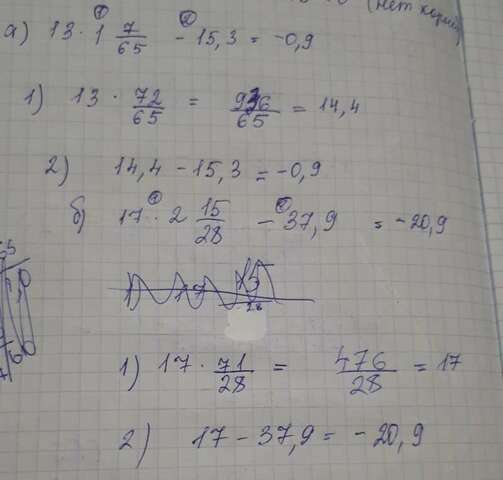 (нет корней)
а) 13 · 1 7/65 − 15,3 = −0,9
1) 13 · 72/65 = 936/65 = 14,4
2) 14,4 − 15,3 = −0,9
б) 17 · 2 15/28 − 37,9 = −20,9
1) 17 · 71/28 = 476/28 = 17
2) 17 − 37,9 = −20,9